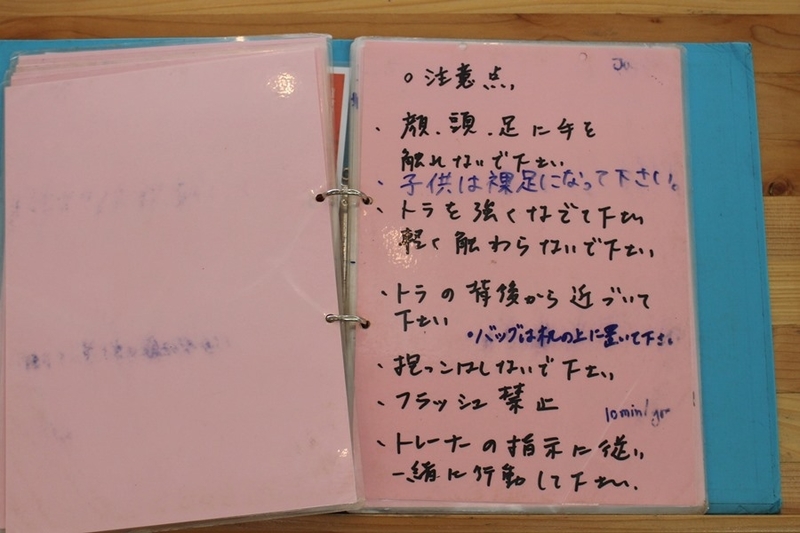 ○注意点、
・顔、頭、足に手を
触れないで下さい
・子供は裸足になって下さい。
・トラを強くなでて下さい
軽く触わらないで下さい
・トラの背後から近づいて
下さい
・バッグは机の上に置いて下さい
・抱っこはしないで下さい
・フラッシュ禁止
10min/
・トレーナーの指示に従い
一緒に行動して下さい.